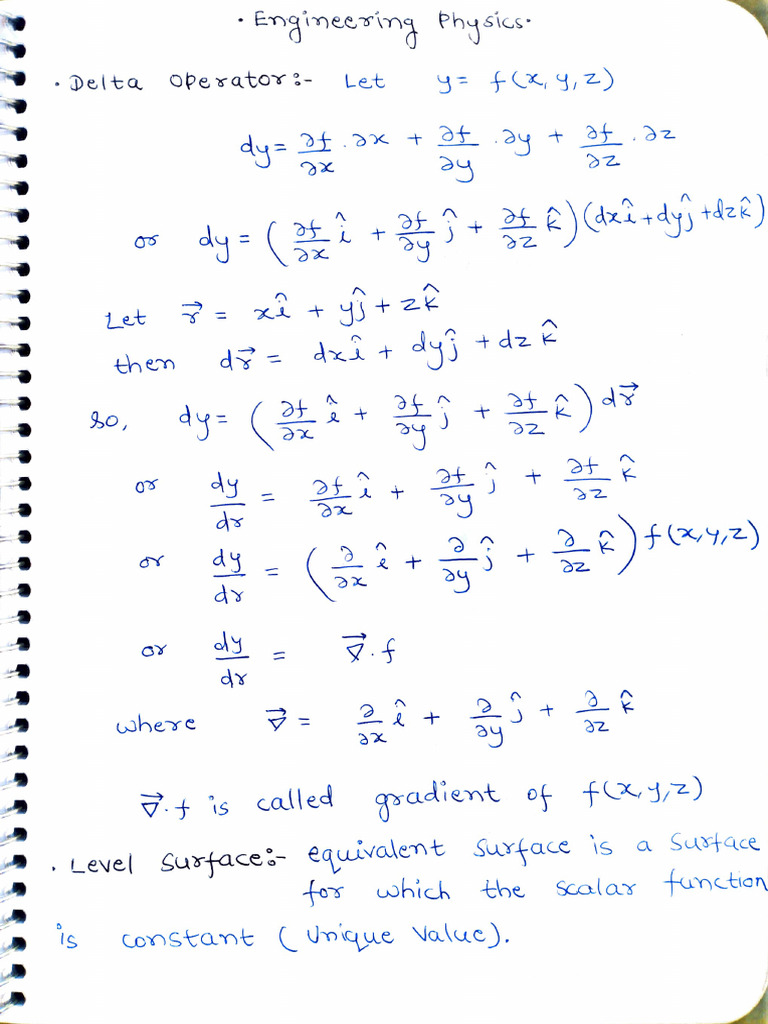 · Engineering Physics ·
· Delta Operator:- Let y = f(x, y, z)
dy = ∂f/∂x · ∂x + ∂f/∂y · ∂y + ∂f/∂z · ∂z
or dy = (∂f/∂x î + ∂f/∂y ĵ + ∂f/∂z k̂)(dxî + dyĵ + dzk̂)
Let r⃗ = xî + yĵ + zk̂
then dr⃗ = dxî + dyĵ + dz k̂
so, dy = (∂f/∂x î + ∂f/∂y ĵ + ∂f/∂z k̂) dr⃗
or dy/dr = ∂f/∂x î + ∂f/∂y ĵ + ∂f/∂z k̂
or dy/dr = (∂/∂x î + ∂/∂y ĵ + ∂/∂z k̂) f(x,y,z)
or dy/dr = ∇⃗.f
where ∇⃗ = ∂/∂x î + ∂/∂y ĵ + ∂/∂z k̂
∇⃗.f is called gradient of f(x,y,z)
· Level Surface:- equivalent surface is a surface
for which the scalar function
is constant (Unique Value).